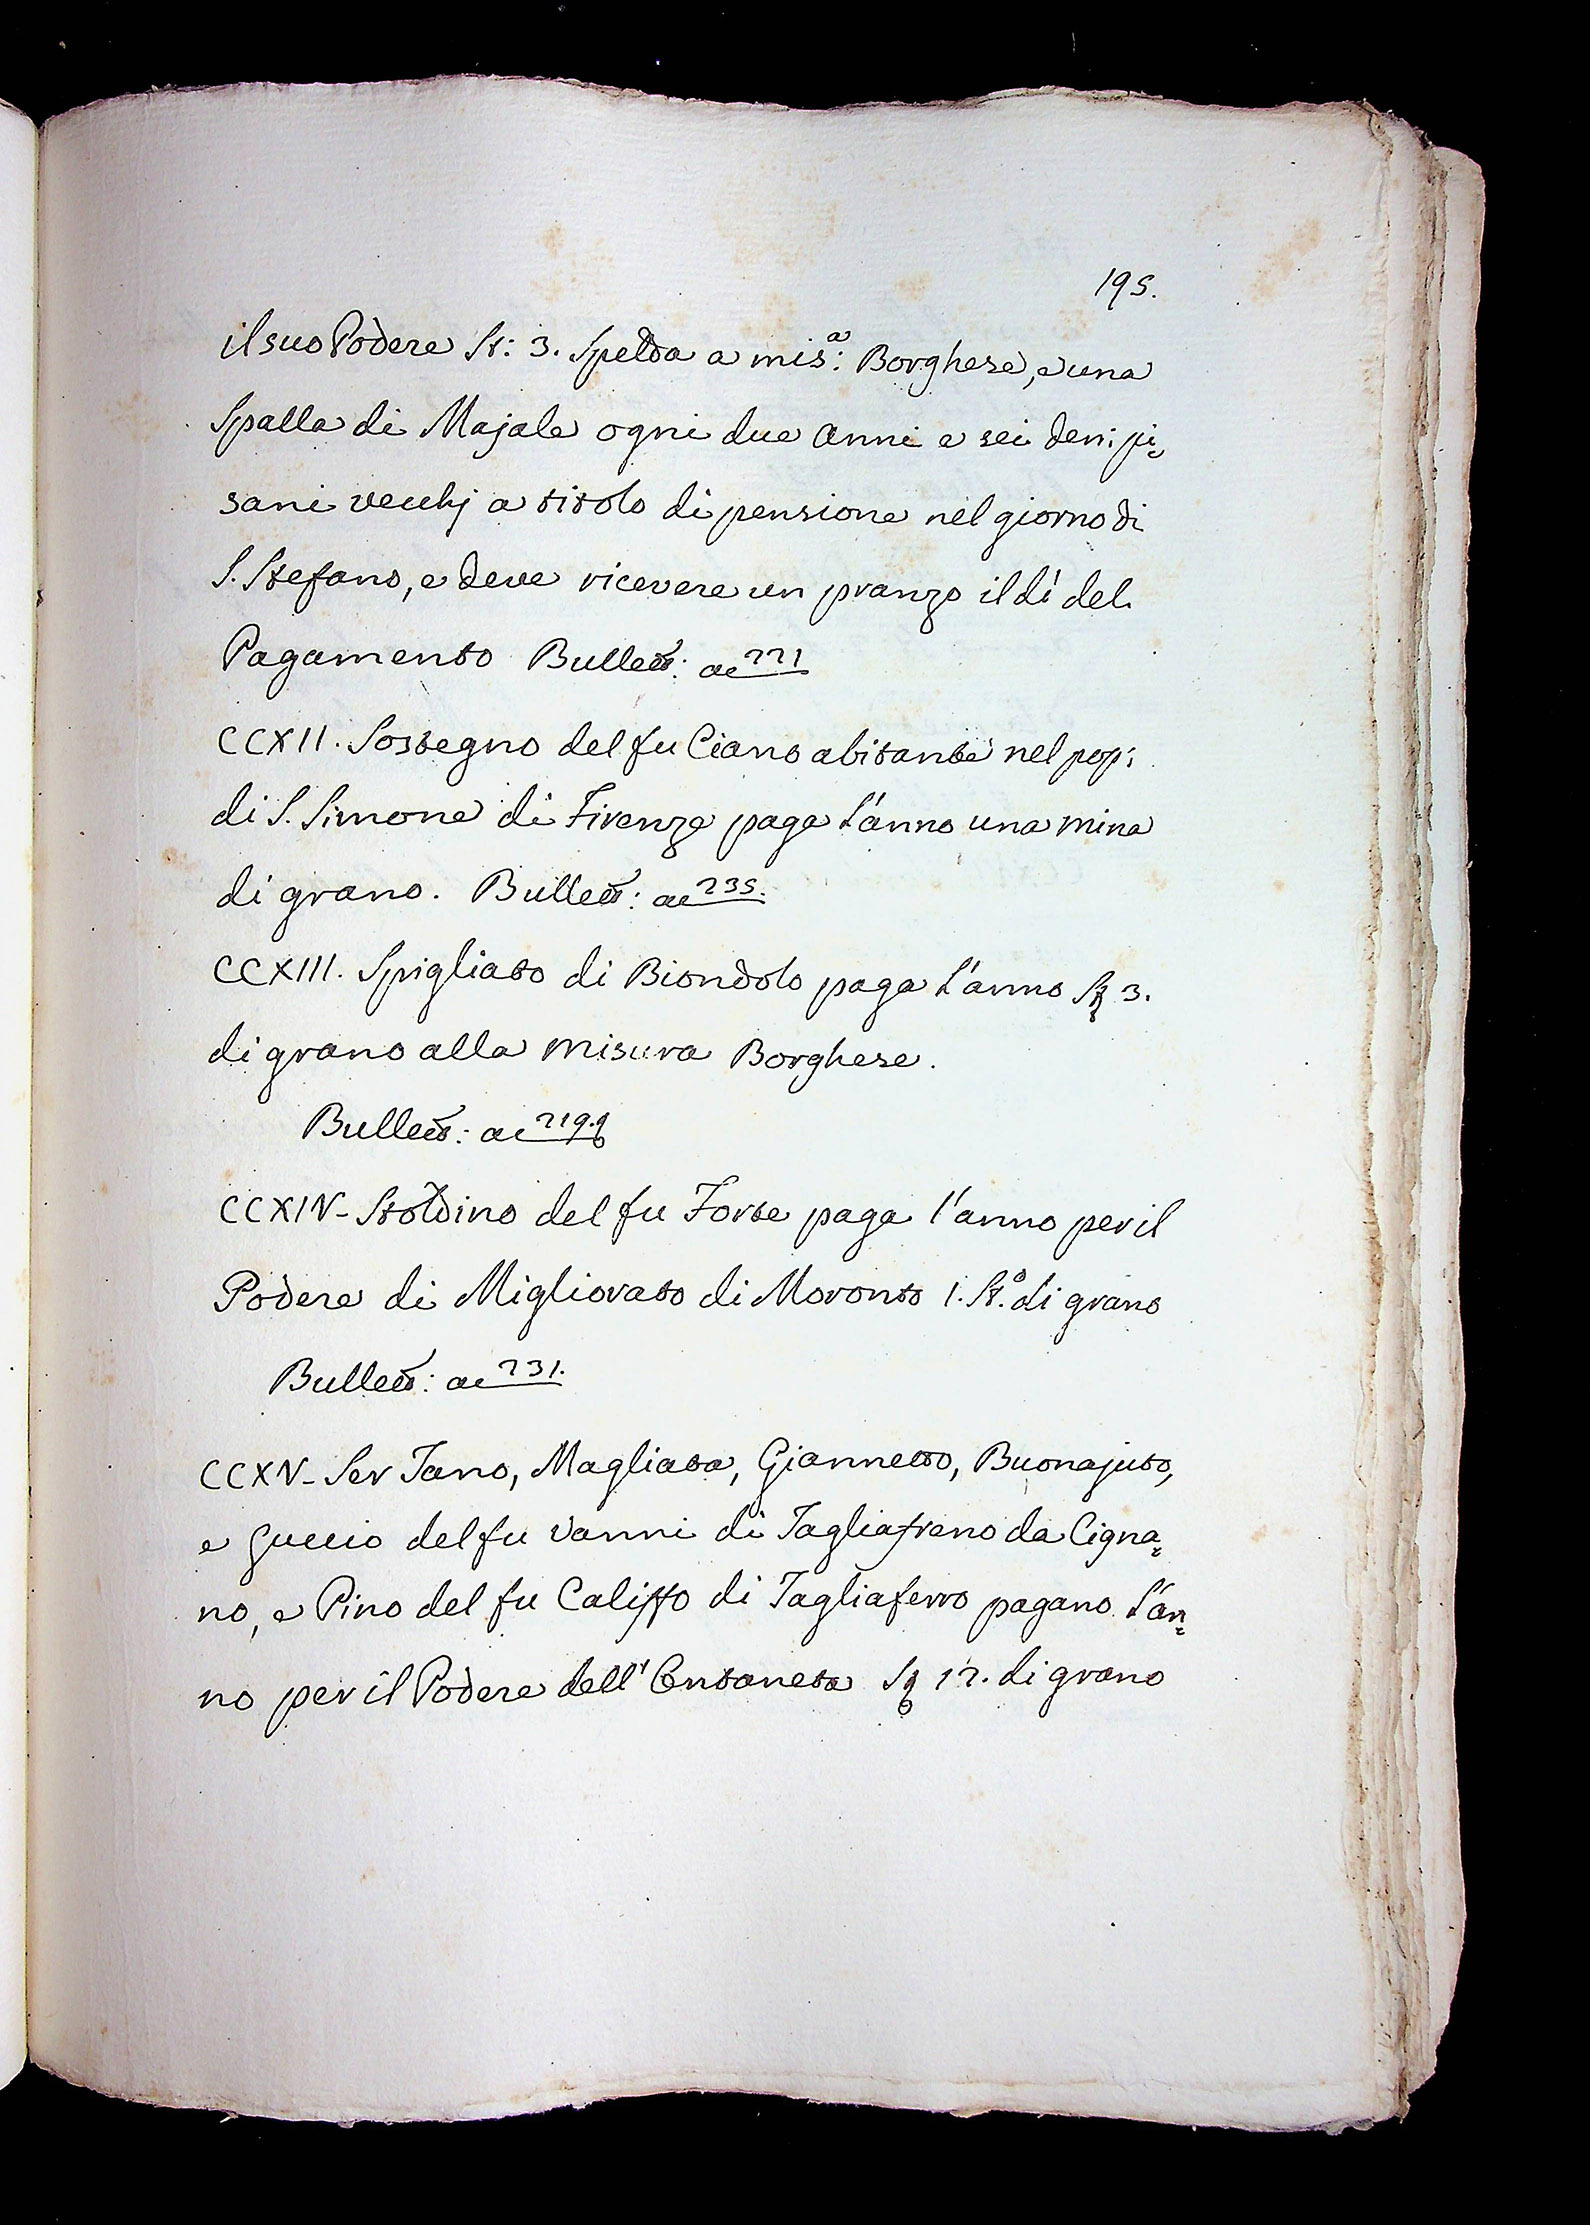 195.
il suo Podere St: 3. Spelda a mis:ª Borghese, e una
Spalla di Majale ogni due anni e sei den: pi=
sani vecchj a titolo di pensione nel giorno di
S. Stefano, e deve ricevere un pranzo il dì del
Pagamento Bullett: ac 221
CCXII. Sostegno del fu Ciano abitante nel pop:
di S. Simone di Firenze paga l'anno una mina
di grano. Bullett: ac 235.
CCXIII. Spigliato di Biondolo paga l'anno St 3.
di grano alla misura Borghese.
Bullett: ac 219.
CCXIV- Stoldino del fu Forte paga l'anno per il
Podere di Migliorato di Moronto 1. St.º di grano
Bullett: ac 231.
CCXV- Ser Tano, Magliata, Giannetto, Buonajuto,
e Guccio del fu Vanni di Tagliafreno da Cigna=
no, e Pino del fu Califfo di Tagliaferro pagano l'an=
no per il Podere dell' Ontaneta St 12. di grano